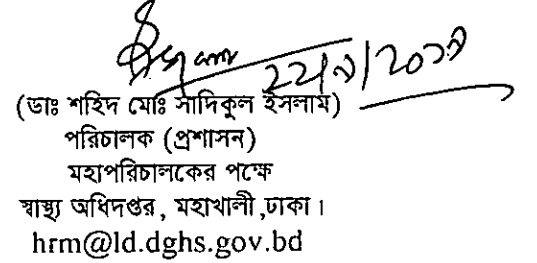 ২২/৯/২০১৯
(ডাঃ শহিদ মোঃ সাদিকুল ইসলাম)
পরিচালক (প্রশাসন)
মহাপরিচালকের পক্ষে
স্বাস্থ্য অধিদপ্তর, মহাখালী ,ঢাকা।
hrm@ld.dghs.gov.bd